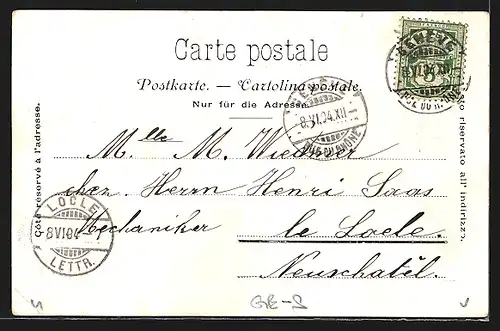 Carte postale
Postkarte. — Cartolina postale.
Nur für die Adresse.
Côté réservé à l'adresse.
Lato riservato all' indirizzo.
GENÈVE
GENÈVE
8.VI.04.XII
RUE DU RHONE
Mlle M.
chez Herrn Henri Saas
Mechaniker
le Locle
Neuschatêl.
LOCLE
8 VI 04
LETTR.
GE-S